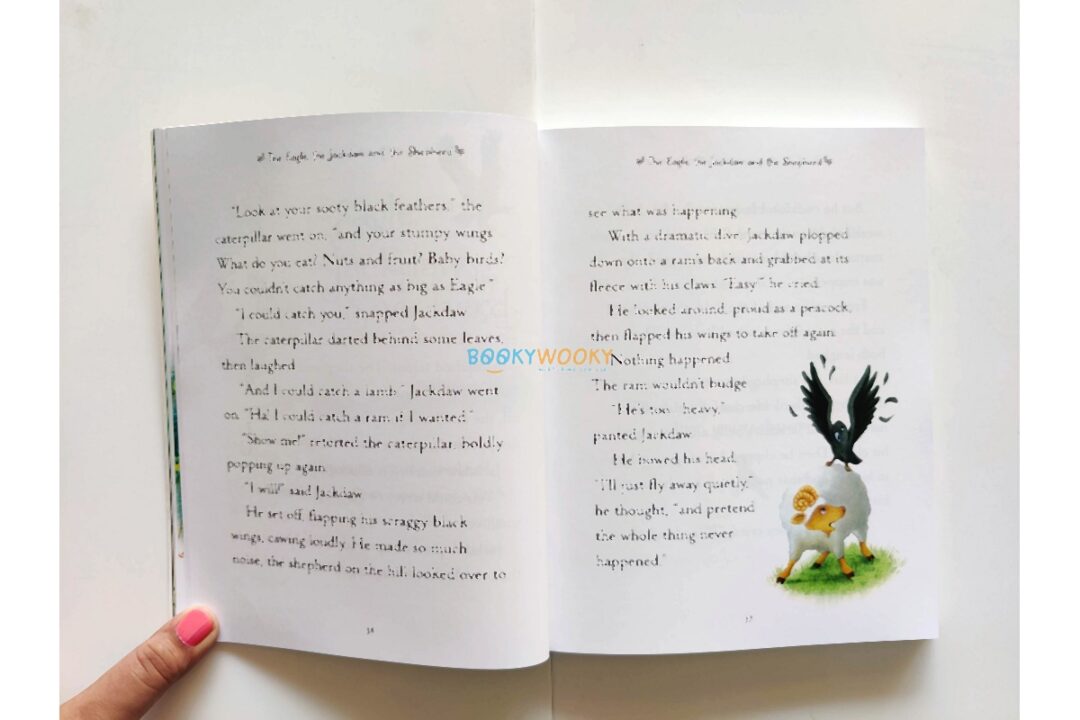 The Eagle, the Jackdaw and the Shepherd
"Look at your sooty black feathers," the
caterpillar went on, "and your stumpy wings.
What do you eat? Nuts and fruit? Baby birds?
You couldn't catch anything as big as Eagle."
"I could catch you," snapped Jackdaw.
The caterpillar darted behind some leaves,
then laughed.
"And I could catch a lamb," Jackdaw went
on. "Ha! I could catch a ram if I wanted."
"Show me!" retorted the caterpillar, boldly
popping up again.
"I will!" said Jackdaw.
He set off, flapping his scraggy black
wings, cawing loudly. He made so much
noise, the shepherd on the hill looked over to
The Eagle, the Jackdaw and the Shepherd
see what was happening.
With a dramatic dive, Jackdaw plopped
down onto a ram's back and grabbed at its
fleece with his claws. "Easy!" he cried.
He looked around, proud as a peacock,
then flapped his wings to take off again.
Nothing happened.
The ram wouldn't budge.
"He's too... heavy,"
panted Jackdaw.
He bowed his head.
"I'll just fly away quietly,"
he thought, "and pretend
the whole thing never
happened."
37
BOOKYWOOKY